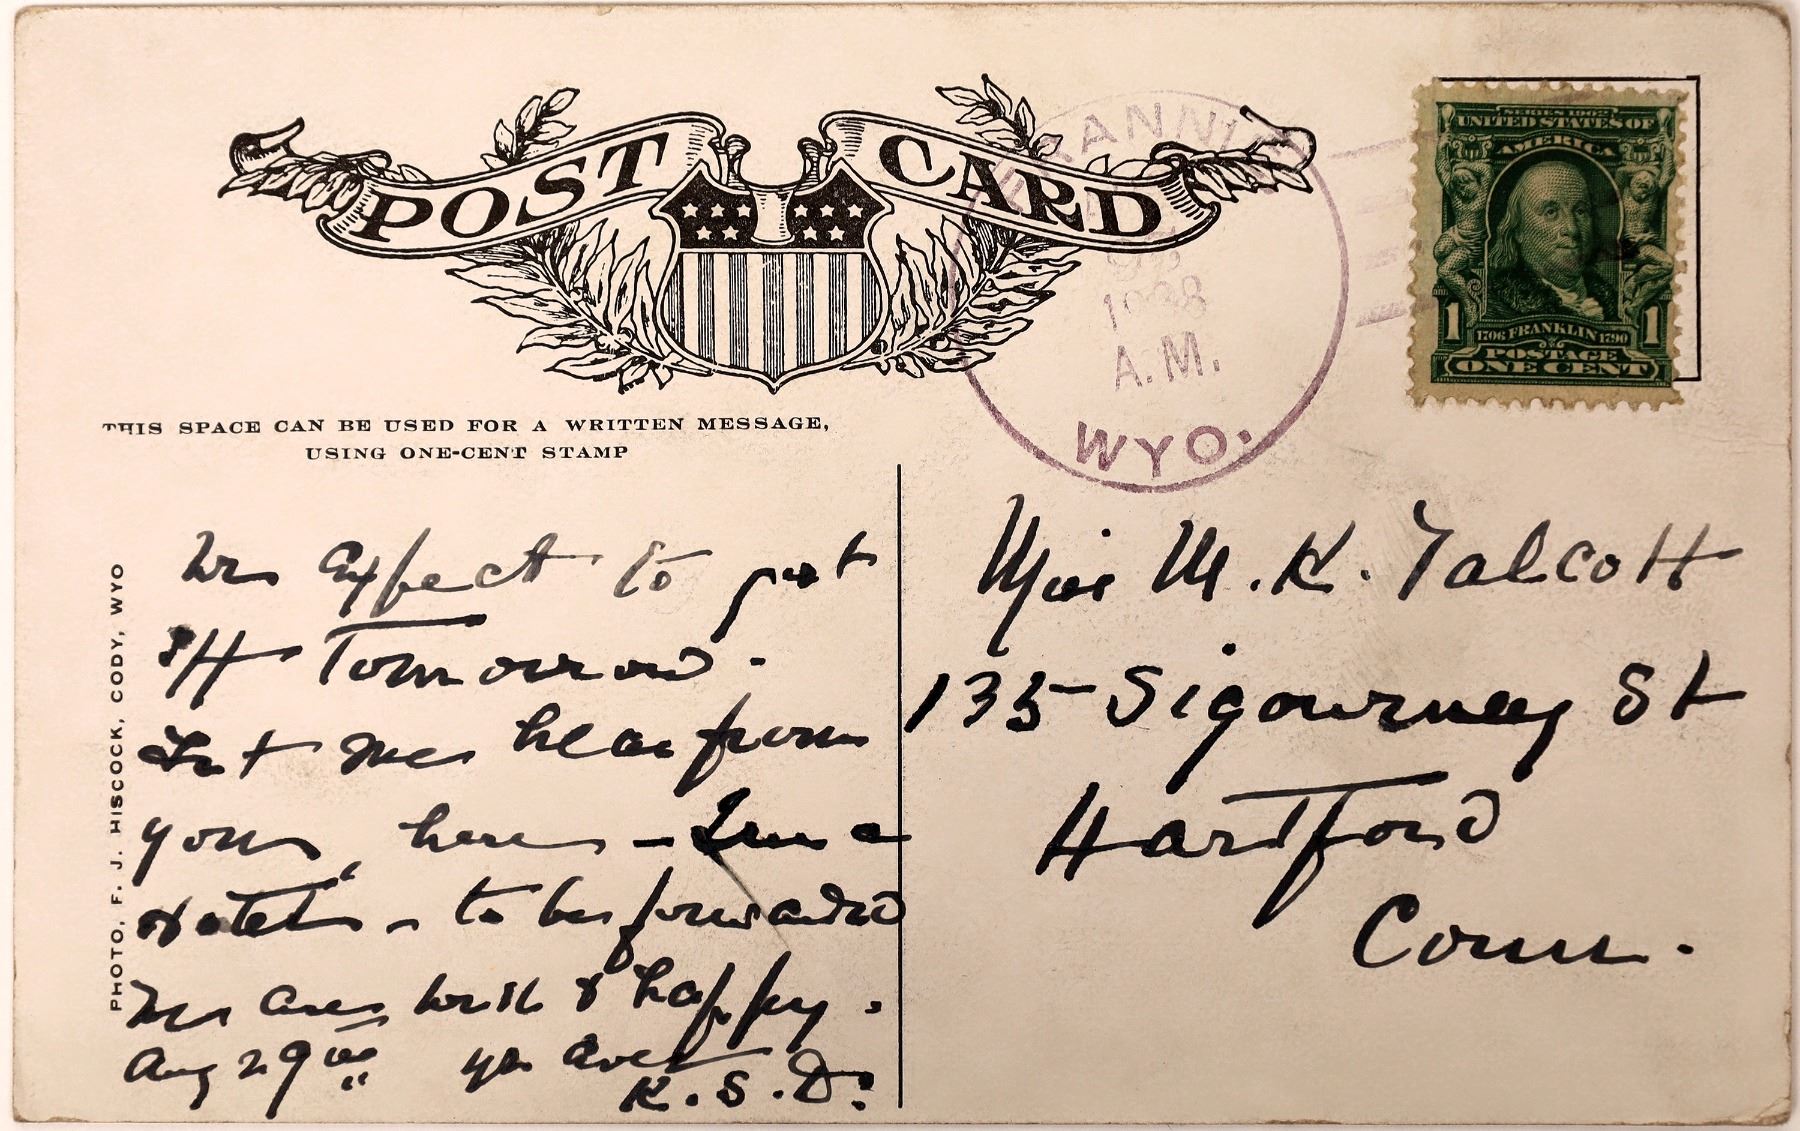 POST CARD
FRANNIE
1908
A.M.
WYO.
SERIES 1902
UNITED STATES OF
AMERICA
1 1706 FRANKLIN 1790 1
POSTAGE
ONE CENT
THIS SPACE CAN BE USED FOR A WRITTEN MESSAGE,
USING ONE-CENT STAMP
PHOTO, F. J. HISCOCK, CODY, WYO
We Expect to get
off Tomorrow.
Let me hear from
you, here – a
Hotel – to be forwarded
We are well & happy.
Aug 29th yr
K.S.D.
Miss M. K. Talcott
135 Sigourney St
Hartford
Conn.